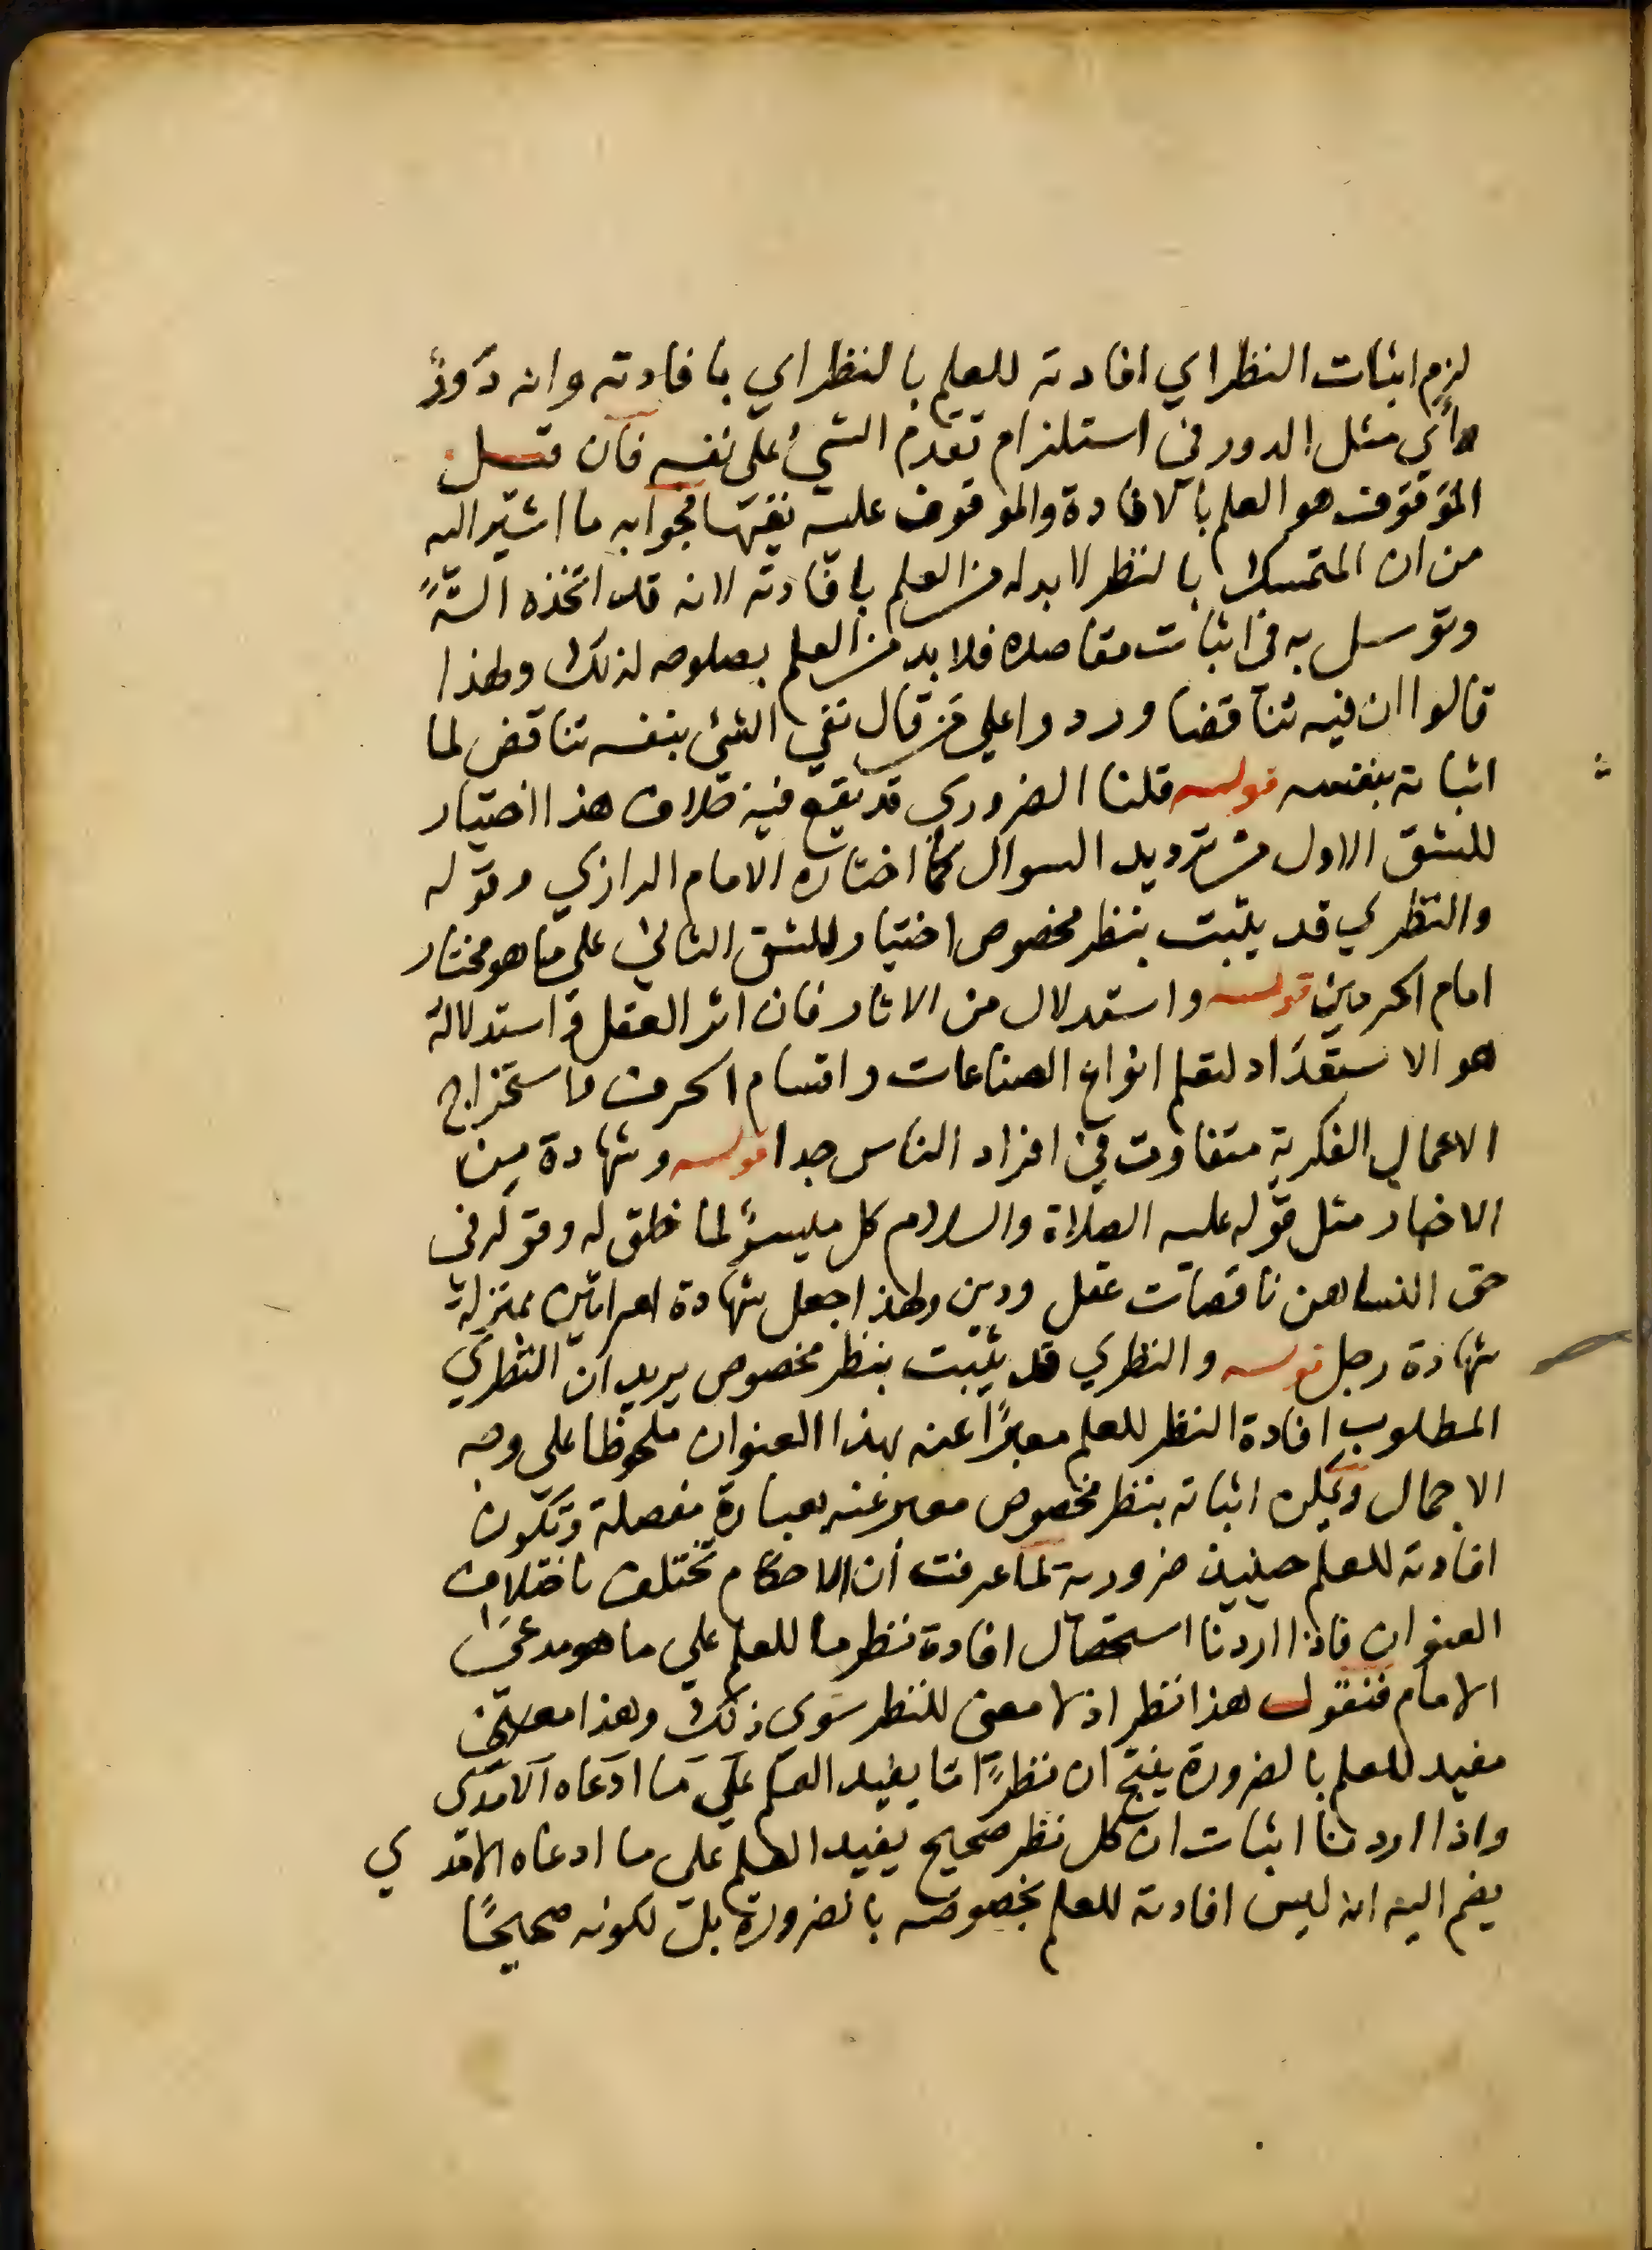 لزم اثبات النظر اي افادته للعلم بالنظر اي بافادته وانه دَورٌ
أي مثل الدور في استلزام تقدم الشئ على نفسه فان قيل
الموقوف هو العلم بالافادة والموقوف عليه نفسها فجوابه ما اشير اليه
من ان المتمسك بالنظر لا بد له من العلم بافادته لانه قد اتخذه آلةً
وتوسل به في اثبات مقاصده فلا بد من العلم بصلوحه لذلك ولهذا
قالوا ان فيه تناقضا وردوا على من قال نفي الشئ بنفسه تناقض لما
اثباته بنفسه قوله قلنا الضروري قد يقع فيه خلاف هذا اختيار
للشق الاول من ترديد السوال كما اختاره الامام الرازي وقوله
والنظري قد يثبت بنظر مخصوص اختيار للشق الثاني على ما هو مختار
امام الحرمين قوله واستدلال من الاثار فان اثر العقل و استدلاله
هو الاستعداد لتعلم انواع الصناعات واقسام الحرف واستخراج
الاعمال الفكرية متفاوت في افراد الناس جدا قوله وشهادة من
الاخبار مثل قوله عليه الصلاة والسلام كل ميسرٌ لما خلق له وقوله في
حق النسا هن ناقصات عقل ودين ولهذا جعل شهادة امراتين بمنزلة
شهادة رجل قوله والنظري قد يثبت بنظر مخصوص يريد ان النظري
المطلوب افادة النظر للعلم معبرًا عنه بهذا العنوان ملحوظا على وجه
الاجمال ويمكن اثباته بنظر مخصوص معبر عنه بعبارة مفصلة وتكون
افادته للعلم حينيذ ضرورية لما عرفت ان الاحكام تختلف باختلاف
العنوان فاذا اردنا استحصال افادة نظر ما للعلم على ما هو مدعى
الامام فنقول هذا نظر اذ لا معنى للنظر سوى ذلك وهذا معين
مفيد للعلم بالضرورة ينتج ان نظرًا ما يفيد العلم على ما ادعاه الامدى
واذا اردنا اثبات ان كل نظر صحيح يفيد العلم على ما ادعاه الامدي
يضم اليه انه ليس افادته للعلم بخصوصه بالضرورة بل لكونه صحيحًا